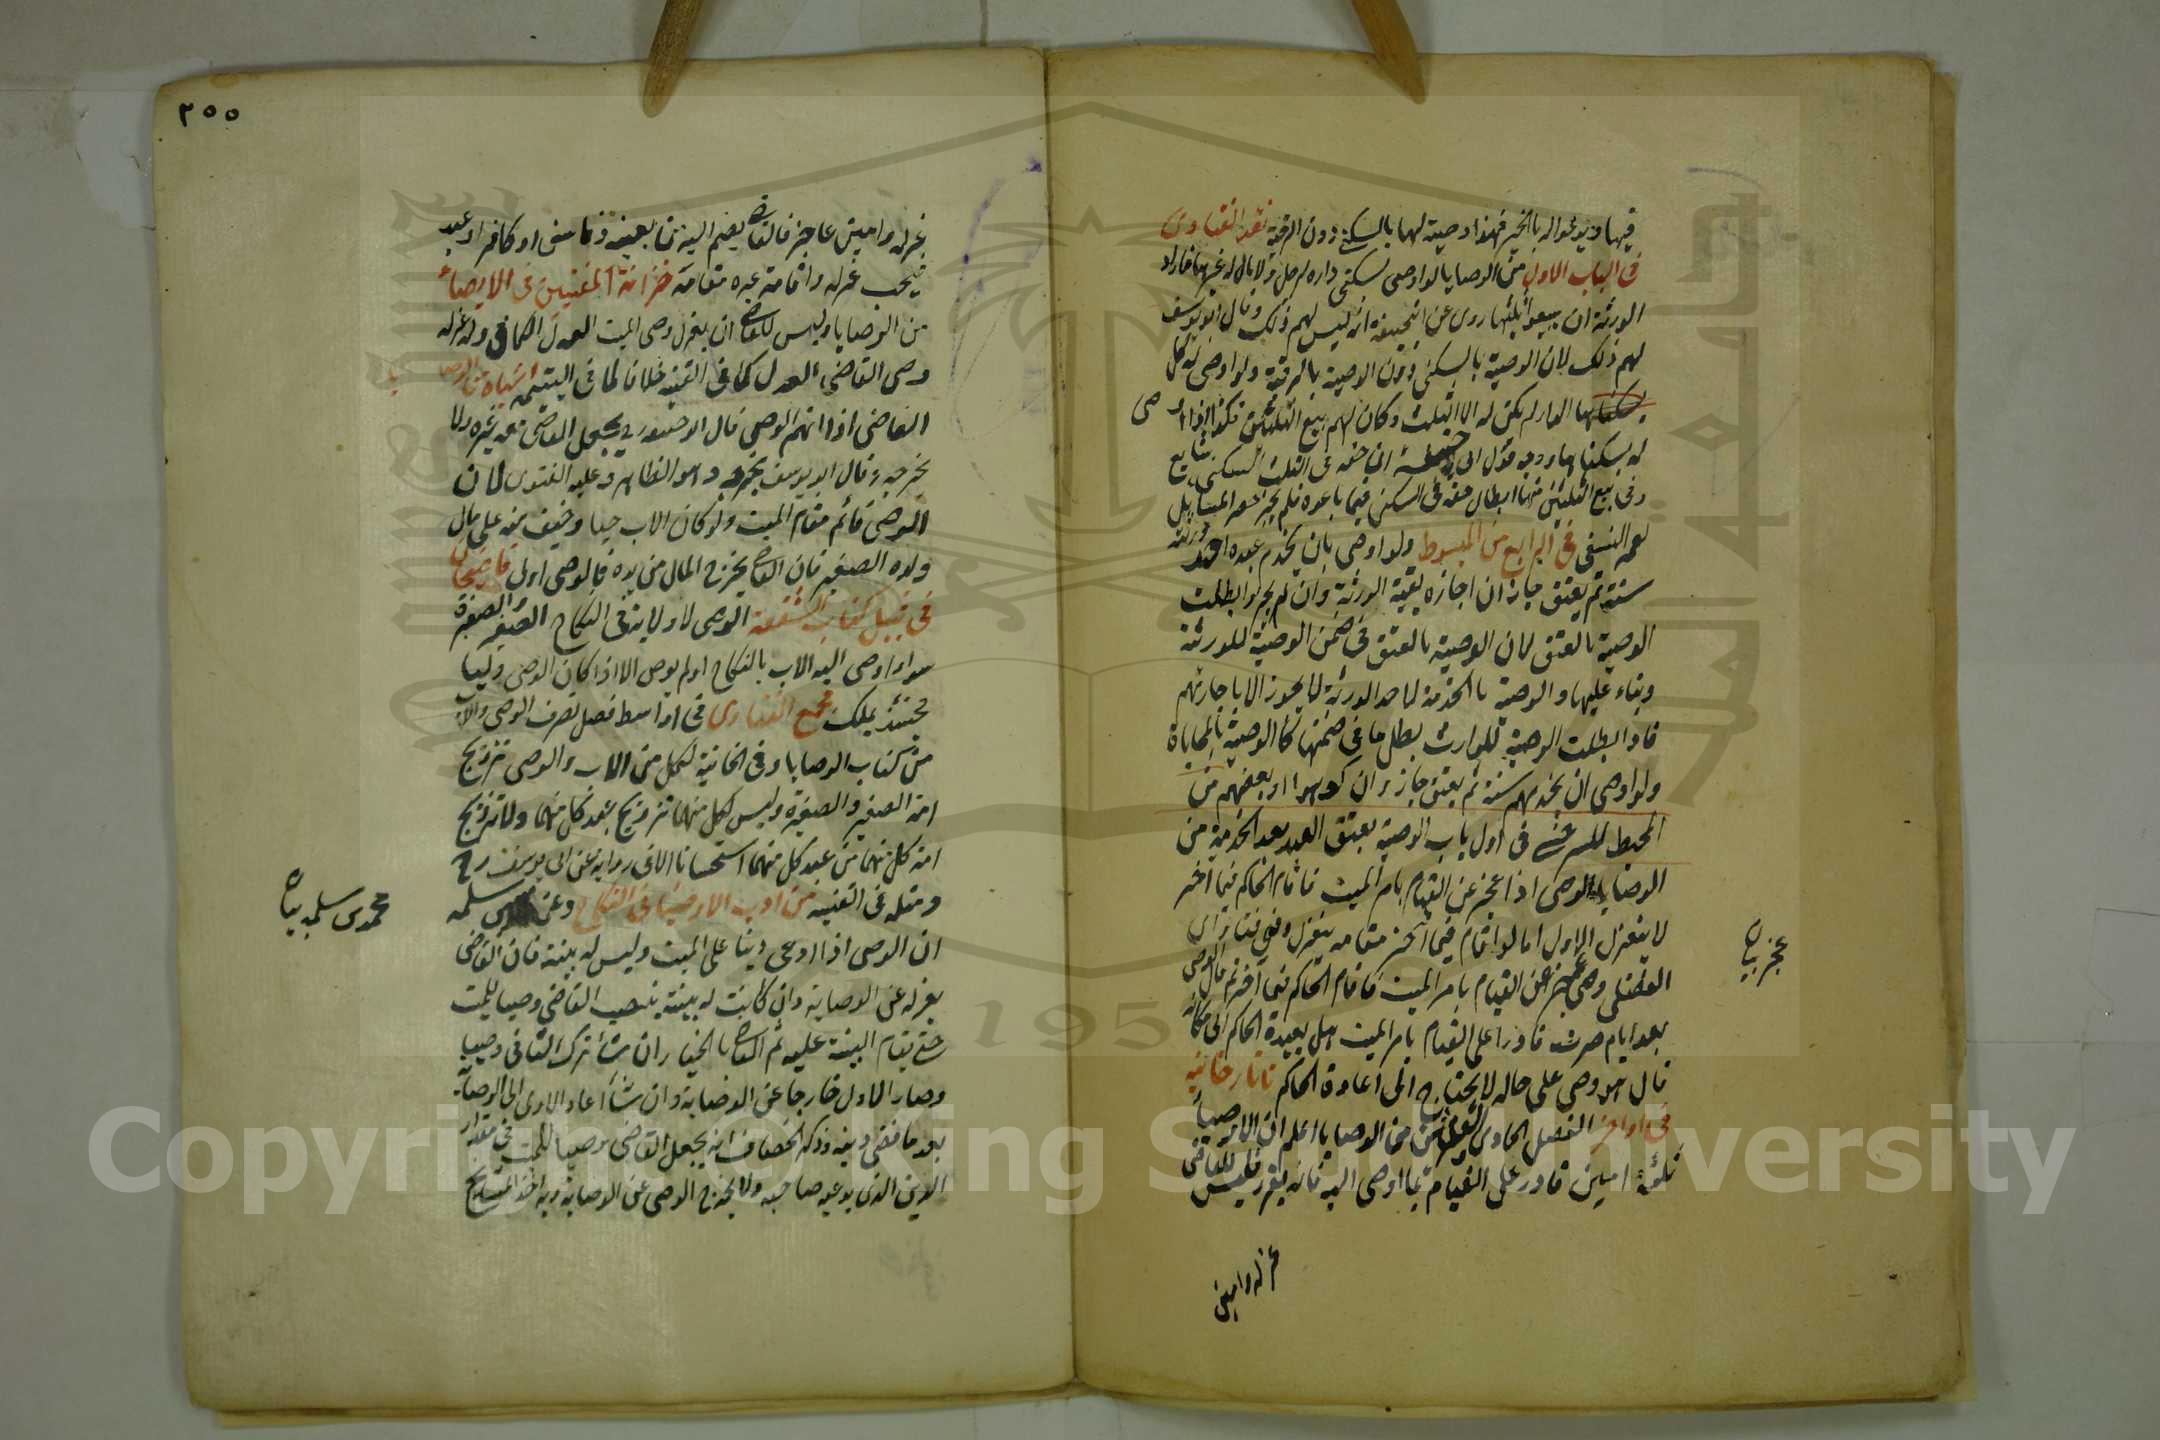 فيها ويدعوا له بالخير فهذا وصية لها بالسكنى دون الرقبة نقد الفتاوى
في الباب الاول من الوصايا لو اوصى بسكنى داره لرجل ولا مال له غيرها فاراد
الورثة ان يبيعوا ثلثيها روى عن ابي حنيفة انه ليس لهم ذلك وقال ابو يوسف
لهم ذلك لان الوصية بالسكنى دون الوصية بالرقبة ولو اوصى له بكل
الدار لم يكن له الا الثلث وكان لهم بيع الثلثين فكذا اذا اوصى
له بسكناها وجه قول ابي حنيفة ان حقه في الثلث السكنى شايع
وفي بيع الثلثين منها ابطال حقه في السكنى فيما باعوه فلم يجز حصر المسائل
لعمر النسفي في الرابع من المبسوط ولو اوصى بان يخدم عبده احد ورثته
سنة ثم يعتق جاز ان اجازه بقية الورثة وان لم يجيزوا بطلت
الوصية بالعتق لان الوصية بالعتق في ضمن الوصية للورثة
وبناء عليها والوصية بالخدمة لاحد الورثة لا يجوز الا باجازتهم
فاذا بطلت الوصية للوارث بطل ما في ضمنها كالوصية بالمحاباة
ولو اوصى ان يخدمهم سنة ثم يعتق جاز وان كرهوا او بعضهم من
المحيط للسرخسي في اول باب الوصية بعتق العبد بعد الخدمة من
الوصايا الوصي اذا عجز عن القيام بامر الميت فاقام الحاكم قيما آخر
لا ينعزل الاول اما لو اقام قيما آخر مقامه ينعزل وفي فتاوى
الفضلي وصي عجز عن القيام بامر الميت فاقام الحاكم قيما آخر ثم قال الوصي
بعد ايام صرت قادرا على القيام بامر الميت هل يعيده الحاكم الى مكانه
قال هو وصي على حاله لا يحتاج الى اعادة الحاكم تاتارخانية
في اواخر الفصل الحادي والعشرين من الوصايا اعلم ان الاوصياء
ثلثة امين قادر على القيام بما اوصى اليه فانه يقرر فليس للقاضي
عزله وامين
عجز بيان
٢٥٥
عزله وامين عاجز فالقاضي يضم اليه من يعينه وفاسق او كافر او عبد
فيجب عزله واقامة غيره مقامه خزانة المفتيين في الايصاء
من الوصايا وليس للقاضي ان يعزل وصي الميت العدل الكافي وله عزله
وصي القاضي العدل كما في القنية خلافا لما في اليتيمة اشباه من الوصايا
القاضي اذا اتهم الوصي قال ابو حنيفة رح يجعل القاضي معه غيره ولا
يخرجه وقال ابو يوسف يخرجه وهو الظاهر وعليه الفتوى لان
الوصي قائم مقام الميت ولو كان الاب حيا وخيف منه على مال
ولده الصغير فان القاضي يخرج المال من يده فالوصي اولى قاضيخان
في قبيل كتاب الشفعة الوصي لا ولاية في النكاح الصغير والصغيرة
سواء اوصى اليه الاب بالنكاح او لم يوص الا اذا كان الوصي وليا
فحينئذ يملك مجمع الفتاوى في اواسط فصل تصرف الوصي والاب
من كتاب الوصايا وفي الخانية لكل من الاب والوصي تزويج
امة الصغير والصغيرة وليس لكل منهما تزويج عبد كل منهما ولا تزويج
امة كل منهما من عبد كل منهما استحسانا الا في رواية عن ابي يوسف رح
ومثله في القنية من ادب الاوصياء في النكاح وعن سلمه
ان الوصي اذا ادعى دينا على الميت وليس له بينة فان القاضي
يعزله عن الوصاية وان كانت له بينة ينصب القاضي وصيا للميت
حتى يقام البينة عليه ثم القاضي بالخيار ان شاء ترك الثاني وصيا
وصار الاول خارجا عن الوصاية وان شاء اعاد الاول الى الوصاية
بعد ما قضى دينه وذكر الخصاف انه يجعل القاضي وصيا للميت في مقدار
الدين الذي يدعيه صاحبه ولا يخرج الوصي عن الوصاية وبه اخذ المشايخ
محمد بن سلمه بيان
Copyright © King Saud University
1957